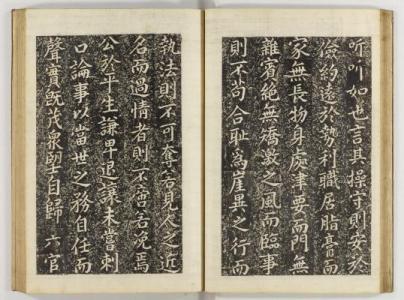 听听如也言其操守則安於
儉約遠於勢利職居脂膏而
家無長物身處津要而門無
雜賓絶無矯激之風而臨事
則不苟合恥爲崖異之行而
執法則不可奪若見人之近
名而過情者則不啻若浼焉
公於平生謙卑退讓未嘗刺
口論事以當世之務自任而
聲實旣茂衆望自歸 六官